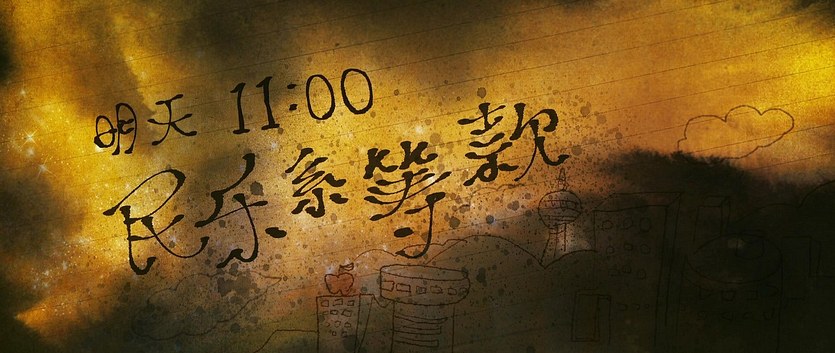 明天 11:00
民乐系筹款